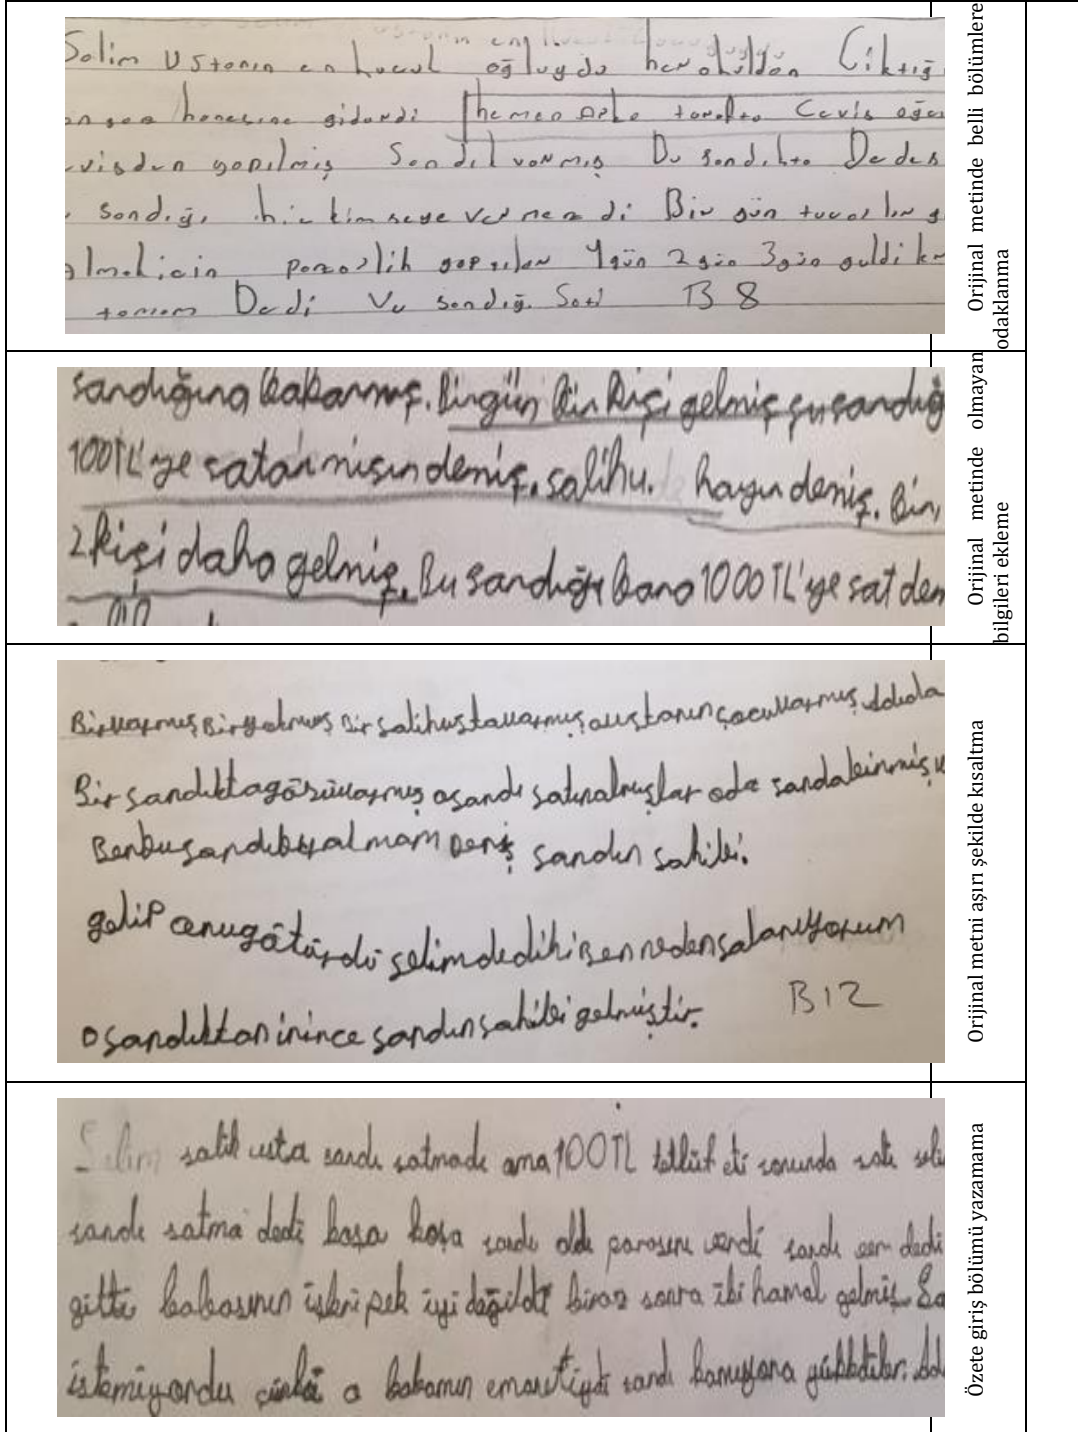 Selim Ustanın en kucuk oğluydu her okuldan Ciktiğ
hanesine giderdi hemen Arka tarafta Cevis ağa
visden yapılmış Sandık varmış Bu sandıkta Dedes
sandığı hic kimseye vermezdi Bir gün tuccarlar g
almak icin pazarlik yaptılar 1gün 2gün 3gün geldiler
tamam Dedi Ve sandığı Sati B 8
Orijinal metinde belli bölümlere
odaklanma
sandığına bakarmış. Birgün Bir kişi gelmiş şu sandığ
100TL'ye satar mısın demiş. salihu. hayır demiş. Bir,
2 kişi daha gelmiş. Bu sandığı bana 1000 TL'ye sat dem
Orijinal metinde olmayan
bilgileri ekleme
Birvarmış Biryokmuş Bir salihustavarmış oustanın çocuvarmış
Bir sandıkta gözüvarmış osandı satınalmışlar oda sandabinmiş
Benbusandıbıyalmam Demiş sandın sahibi.
gelip götürdü selimdedihi Ben nedensalanıyorum
osandıktan inince sandınsahibi gelmiştir. B12
Orijinal metni aşırı şekilde kısaltma
Selim salih usta sandı satmadı ama 100TL teklif eti sonunda satı seli
sandı satma dedi koşa koşa sandı aldı parasını verdi sandı ver dedi
gitti babasının işleri pek iyi değildi biraz sonra iki hamal gelmiş. Sa
istemiyordu çünkü o babamın emanetiydi sandı kamyona yüklediler.
Özete giriş bölümü yazamama